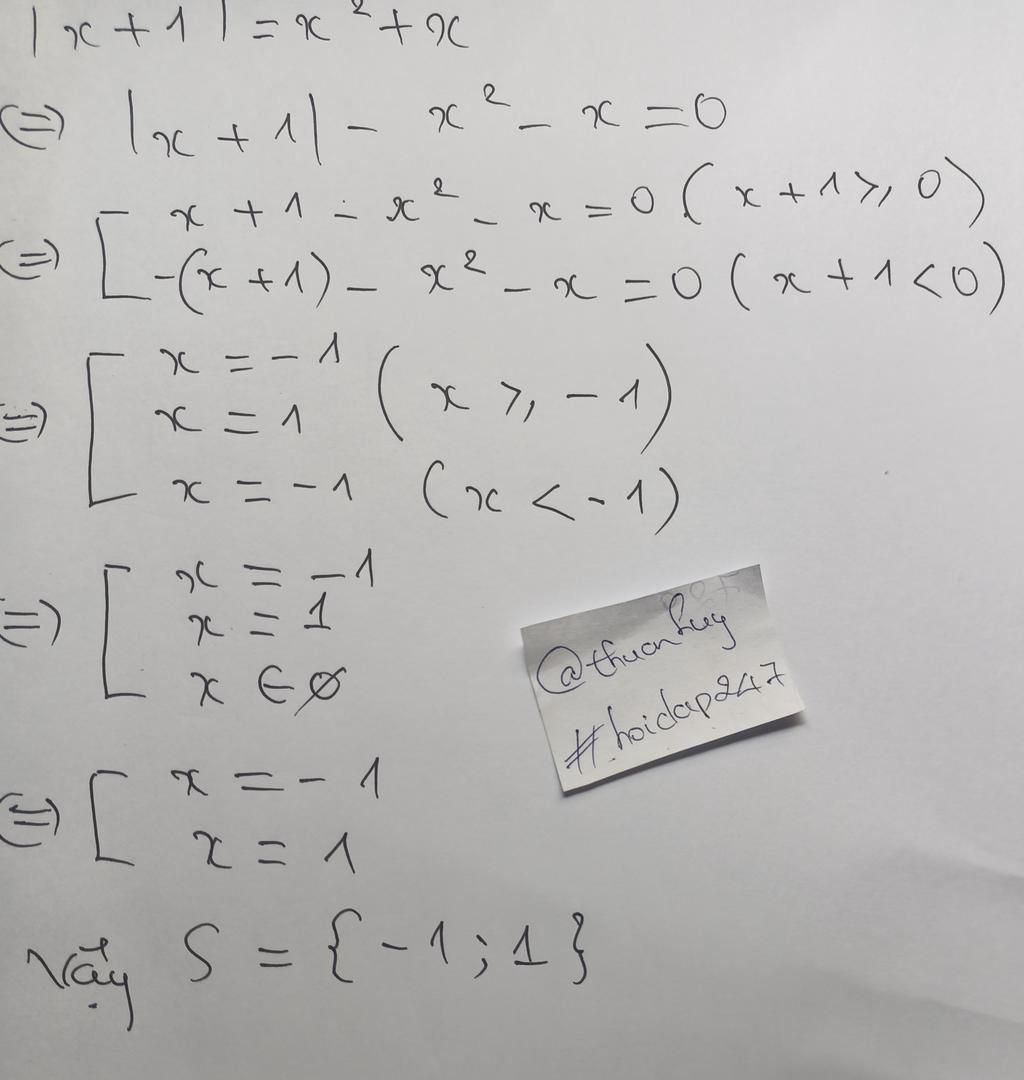 |x + 1| = x² + x
(=) |x + 1| - x² - x = 0
(=) [ x + 1 - x² - x = 0 ( x + 1 ≥ 0 )
-(x + 1) - x² - x = 0 ( x + 1 < 0 )
(=) [ x = -1
x = 1 ( x ≥ -1 )
x = -1 ( x < -1 )
(=) [ x = -1
x = 1
x ∈ ∅
(=) [ x = -1
x = 1
Vậy S = { -1 ; 1 }
@thuanhuy
#hoidap247